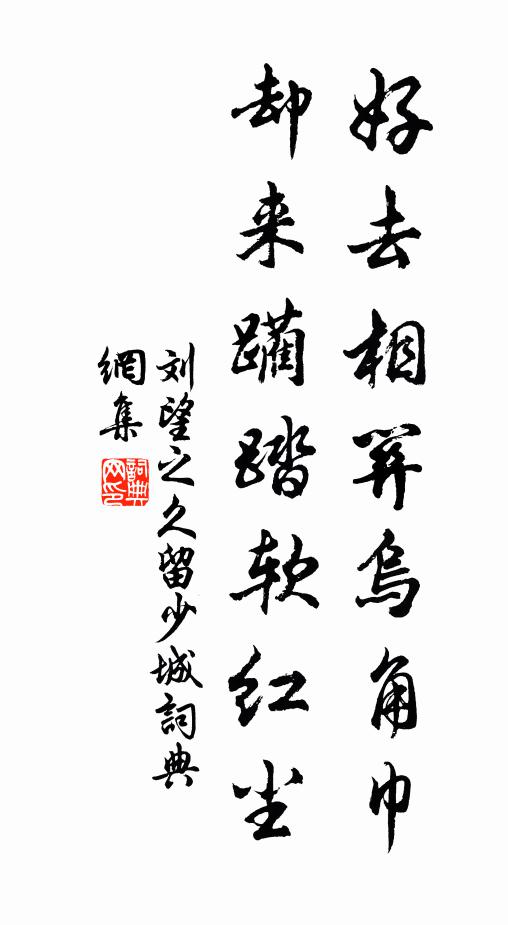 好去相烏角巾
却来踏软红尘
刘望之久留少城詞典
網集
詞典
网印